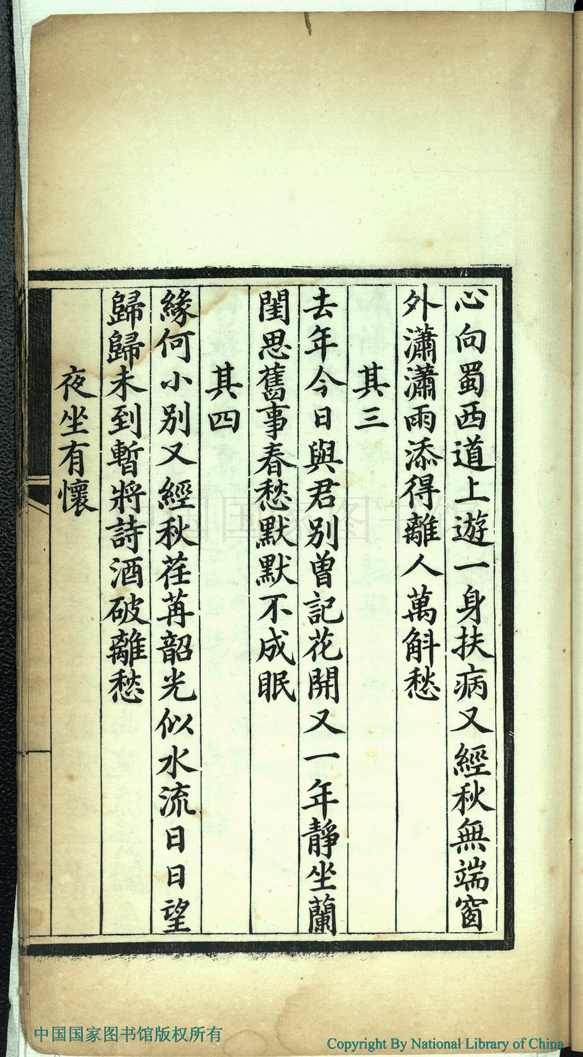 心向蜀西道上遊一身扶病又經秋無端窗
外瀟瀟雨添得離人萬斛愁
其三
去年今日與君別曾記花開又一年靜坐蘭
閨思舊事春愁默默不成眠
其四
緣何小別又經秋荏苒韶光似水流日日望
歸歸未到暫將詩酒破離愁
夜坐有懷
中国国家图书馆
中国国家图书馆版权所有
Copyright By National Library of China